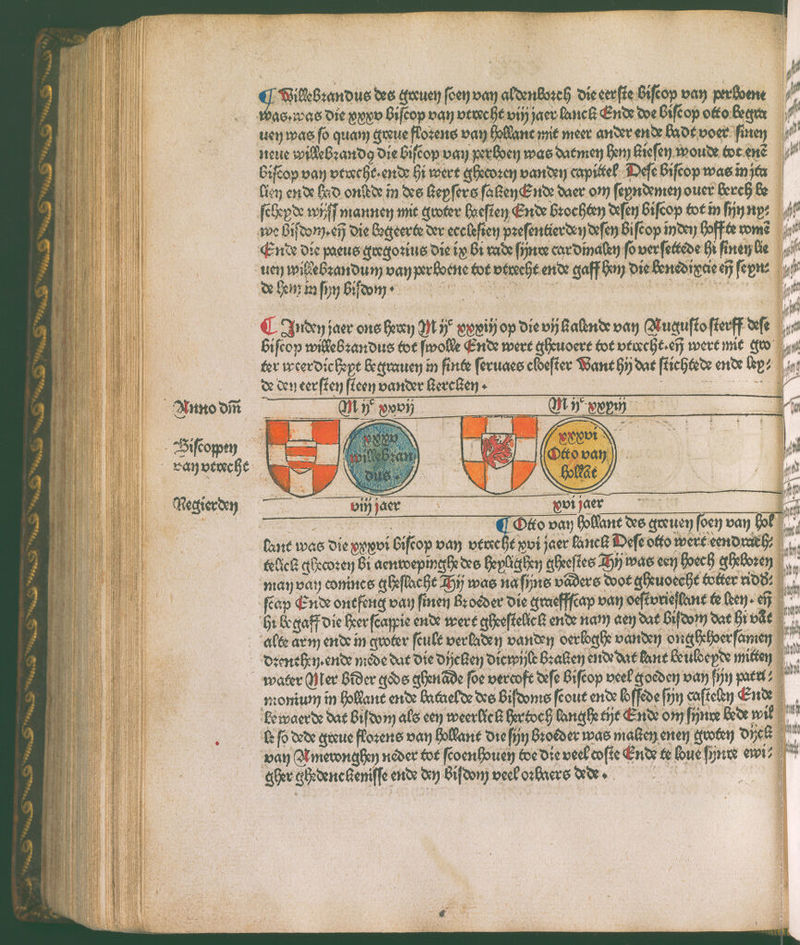 ¶ Willebrandus des greuen soen van aldenborch die eerste biscop van perborne
was. was die xxxv biscop van vtrecht viij jaer lanck Ende doe biscop otto begra
uen was so quam greue florens van hollant mit meer ander ende badt voer sinen
neue willebrandꝰ die biscop van perboen was datmen hem kiesen woude tot enē
biscop van vtrecht. ende hi wert ghecoren vanden capittel Dese biscop was in jta
lien ende had onlede in des keysers saken Ende daer om seyndemen ouer berch be
scheyde wijff mannen mit groter haesten Ende brochten desen biscop tot in sijn ny⸗
we bisdom. eñ die begeerte der ecclesien presentierden desen biscop inden hoff te romē
Ende die paeus gregorius die ix bi rade sijnre cardinalen so versettede hi sinen lie
uen willebrandum van perborne tot vtrecht ende gaff hem die benedixcie eñ seyn⸗
de hem in sijn bisdom.
¶ Inden jaer ons heren M ijᶜ xxxiij op die vij kalende van Augusto sterff dese
biscop willebrandus tot swolle Ende wert gheuoert tot vtrecht. eñ wert mit gro
ter weerdicheyt begrauen in sinte seruaes cloester Want hij dat stichtede ende ley⸗
de den eersten steen vander kercken.
Anno dm̄ M ijᶜ xxvij M ijᶜ xxxiij
Biscoppen
van vtrecht
xxxv
willebran
dus.
xxxvi
Otto van
hollāt
Regierden viij jaer xvi jaer
¶ Otto van hollant des greuen soen van hol
lant was die xxxvi biscop van vtrecht xvi jaer lanck Dese otto wert eendrach⸗
telick ghecoren bi aenroepinghe des heylighen gheestes Hij was een hoech gheboren
man van conincs gheslacht Hij was na sijns vaders doot gheuoecht totter ridd⸗
scap Ende ontfeng van sinen broeder die graeffscap van oestvrieslant te leen. eñ
hi begaff die heerscappie ende wert gheestelick ende nam aen dat bisdom dat hi vāt
alte arm ende in groter scult verladen vanden oerloghe vanden onghehoersamen
drenthen. ende mede dat die dijcken dicwijle braken ende dat lant beuloeyde mitten
water Mer bider gods ghenade soe vercoft dese biscop veel goeden van sijn patri⸗
monium in hollant ende betaelde des bisdoms scout ende lossede sijn castelen Ende
bewaerde dat bisdom als een weerlick hertoch langhe tijt Ende om sijnre bede wil
le so dede greue florens van hollant die sijn broeder was maken enen groten dijck
van Ameronghen neder tot scoenhouen toe die veel coste Ende te loue sijnre ewi⸗
gher ghedenckenisse ende den bisdom veel orbaers dede.